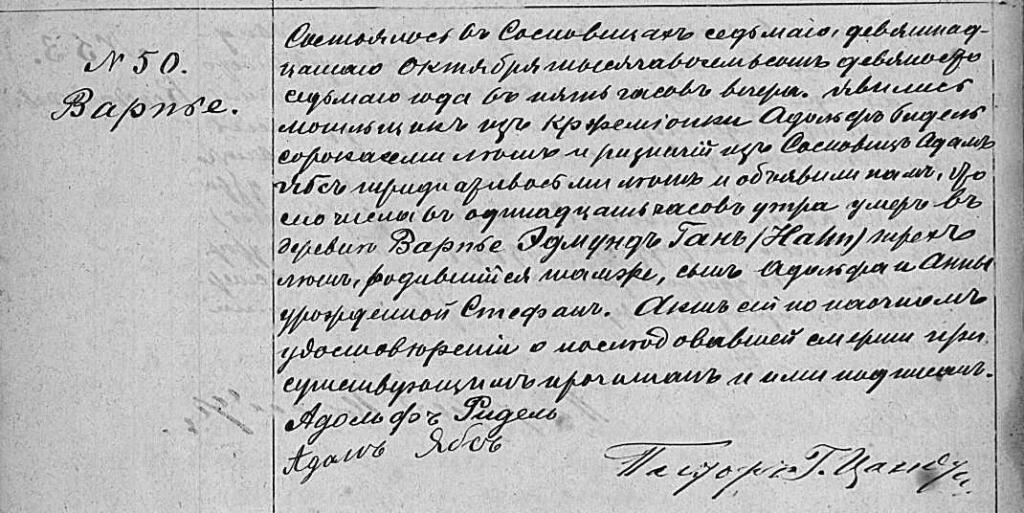 № 50.
Варпье.
Состоялось въ Сосновицахъ седьмаго, девятнад-
цатаго Октября тысяча восемьсотъ девяносто
седьмаго года въ пять часовъ вечера. Явились
могильщикъ изъ Кржеміонки Адольфъ Ридель
сорока семи лѣтъ и ризничій изъ Сосновицъ Адамъ
Ябсъ тридцати восьми лѣтъ и объявили намъ, что
сего числа въ одинадцать часовъ утра умеръ въ
деревнѣ Варпье Эдмундъ Ганъ (Hahn) трехъ
лѣтъ, родившійся тамже, сынъ Адольфа и Анны
урожденной Стефанъ. Актъ сей по наочномъ
удостовѣреніи о послѣдовавшей смерти при-
сутствующимъ прочитанъ и ими подписанъ.
Адольфъ Ридель
Адамъ Ябсъ
Пасторъ Г.